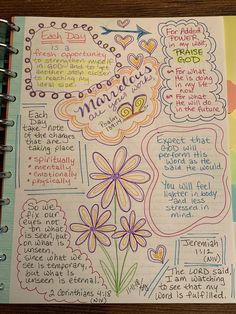 Each Day
is a
fresh opportunity
to strengthen mind
GOD and to get
another step closer
to reaching my
ideal size.
Marvelous
are your works
Psalm
For Added
POWER
in my walk,
PRAISE
GOD
• For what
He is doing
in my life
now
• For what
He will do
in the future
Each Day
take note
of the
changes
that are
taking place
• spiritually
• mentally
• emotionally
• physically
Expect that
GOD will
perform His
Word as He
said He
would.
You will feel
lighter in body
and less
stressed in
mind.
So we
fix our
eyes not
on what
is seen, but
on what is
unseen,
since what
we see is
temporary,
but what is
unseen is
eternal.
2 Corinthians 4:18
(NIV)
Jeremiah
1:12
(NIV)
The LORD said,
I am watching
to see that my
Word is fulfilled.